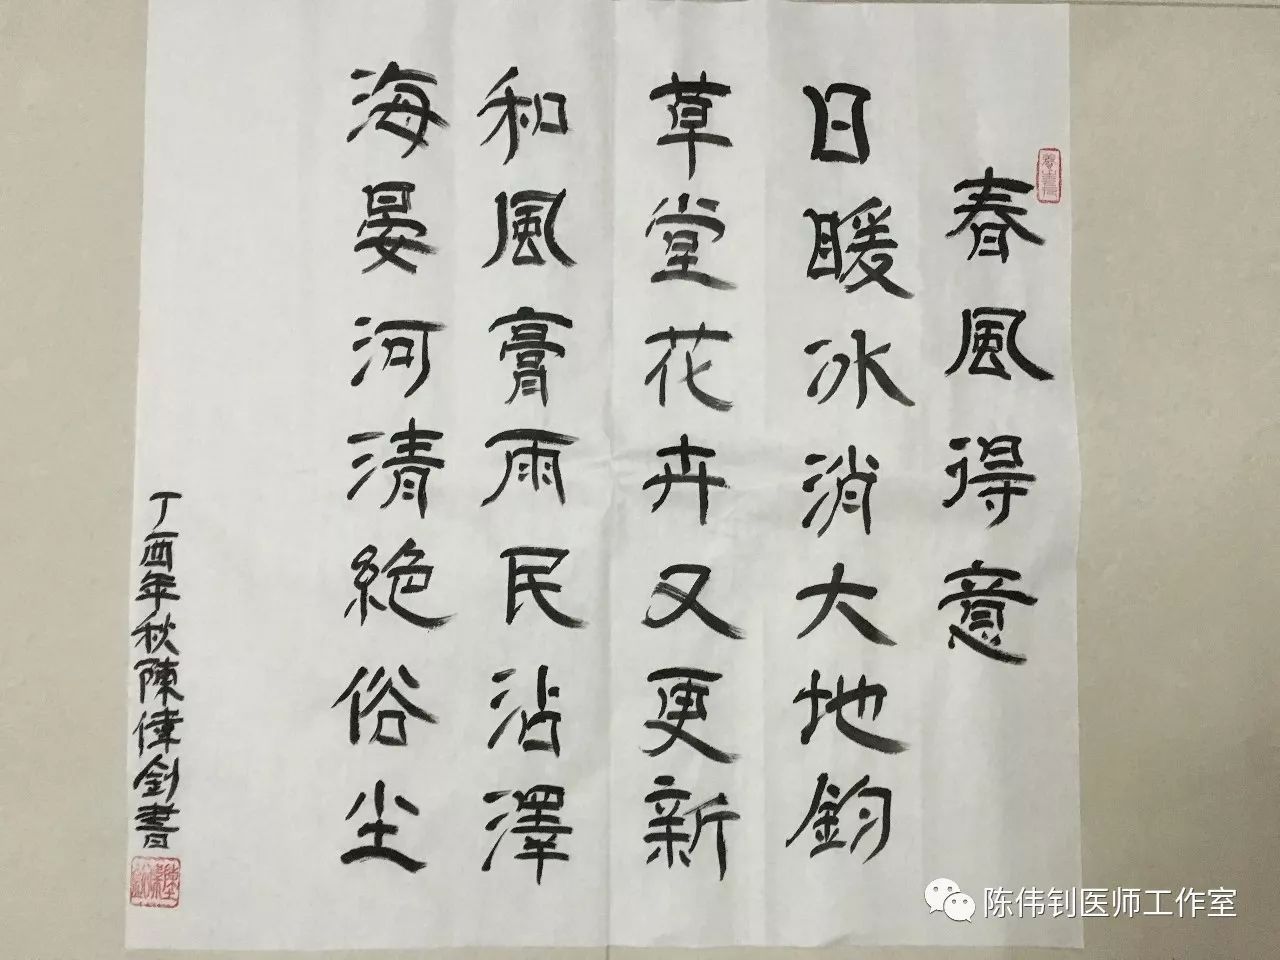 春風得意
日暖冰消大地鈞
草堂花卉又更新
和風膏雨民沾澤
海晏河清絶俗尘
丁酉年秋陳偉釗書
陈伟钊医师工作室